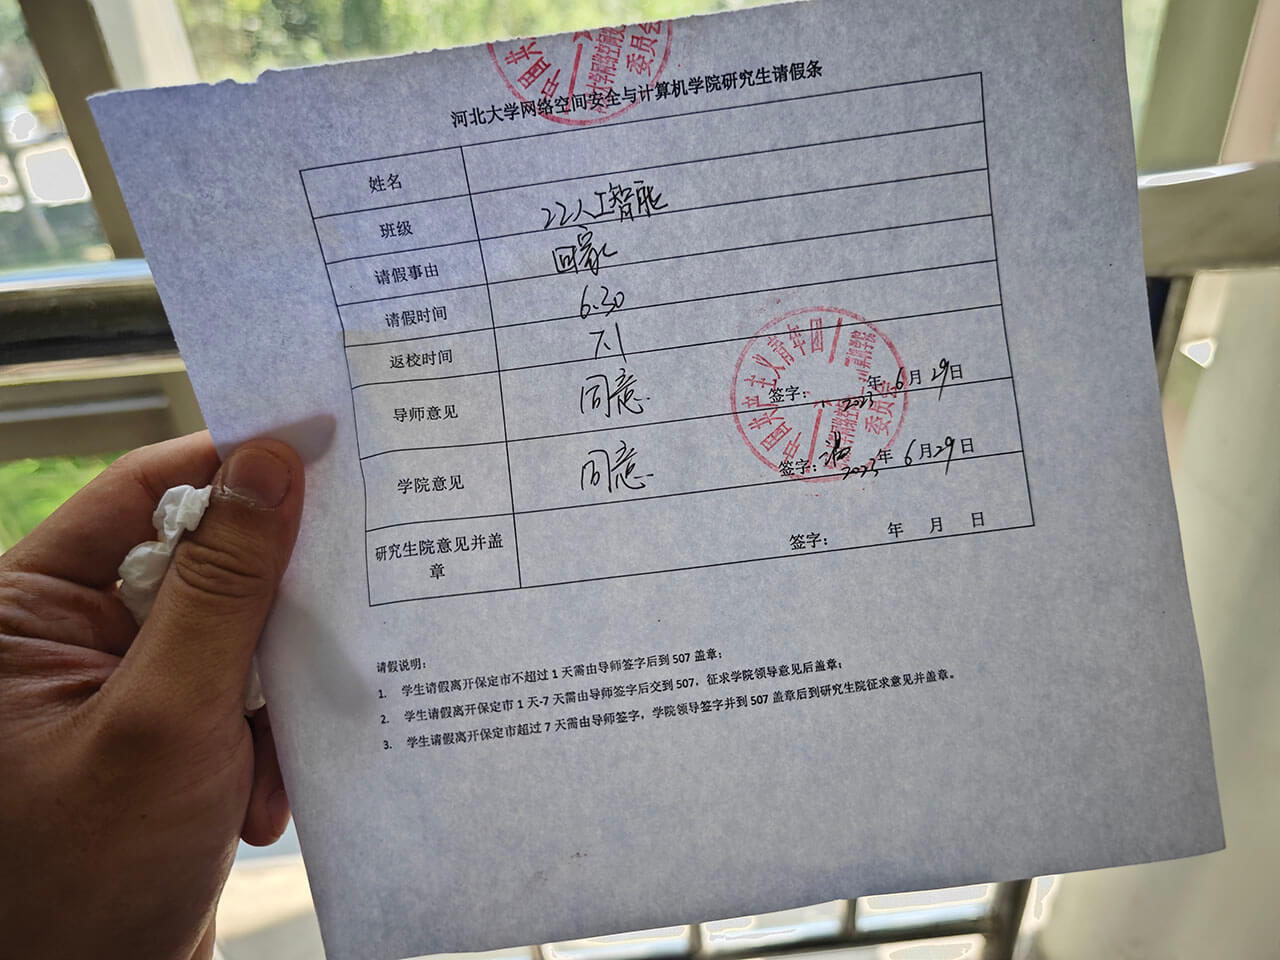 河北大学网络空间安全与计算机学院研究生请假条
姓名
班级 22人工智能
请假事由 回家
请假时间 6.30
返校时间 7.1
导师意见 同意 签字: 2023年6月29日
学院意见 同意 签字: 2023年6月29日
研究生院意见并盖章 签字: 年 月 日
中国共产主义青年团
委员会
请假说明:
1. 学生请假离开保定市不超过 1 天需由导师签字后到 507 盖章;
2. 学生请假离开保定市 1 天-7 天需由导师签字后交到 507,征求学院领导意见后盖章;
3. 学生请假离开保定市超过 7 天需由导师签字,学院领导签字并到 507 盖章后到研究生院征求意见并盖章。